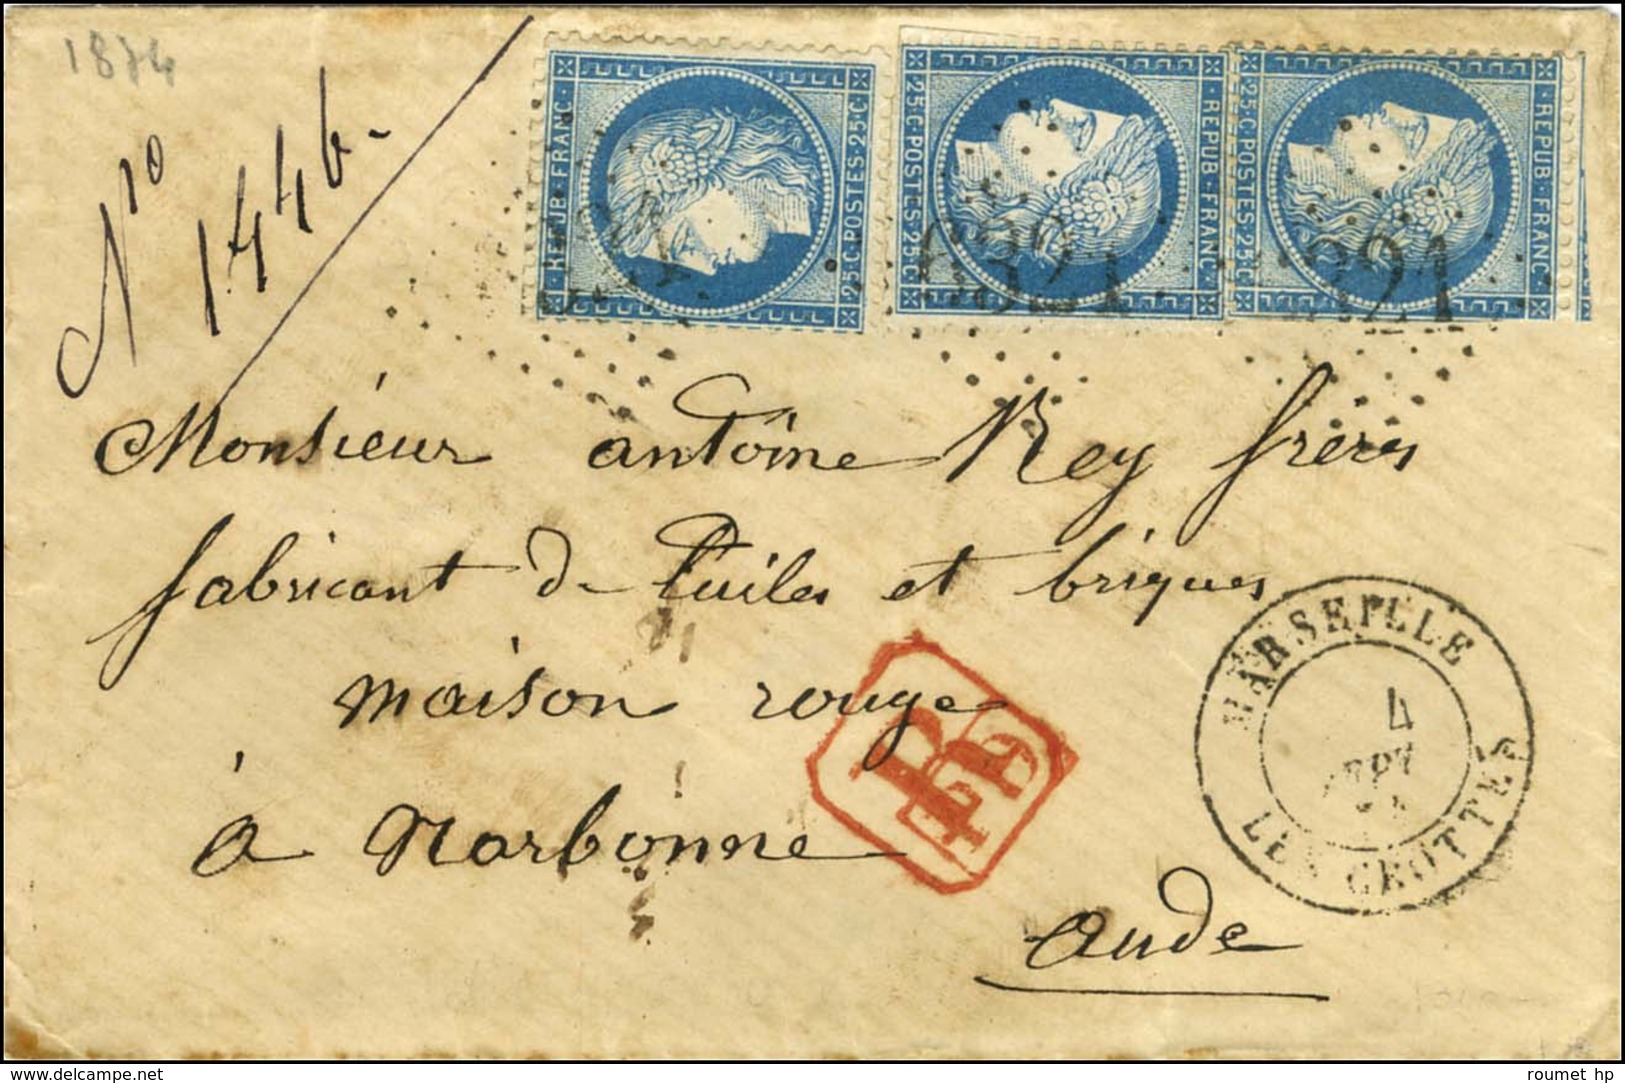 1874
No
1446.
REPUB·FRANC·
25C·POSTES·25C
25C·POSTES·25C
REPUB·FRANC·
25C·POSTES·25C
REPUB·FRANC·
6321
Monsieur antoîne Rey frères
fabricant de Tuiles et briques
maison rouge
à Narbonne
aude
R
MARSEILLE
4
SEPT
LES CROTTES
www.delcampe.net
roumet hp